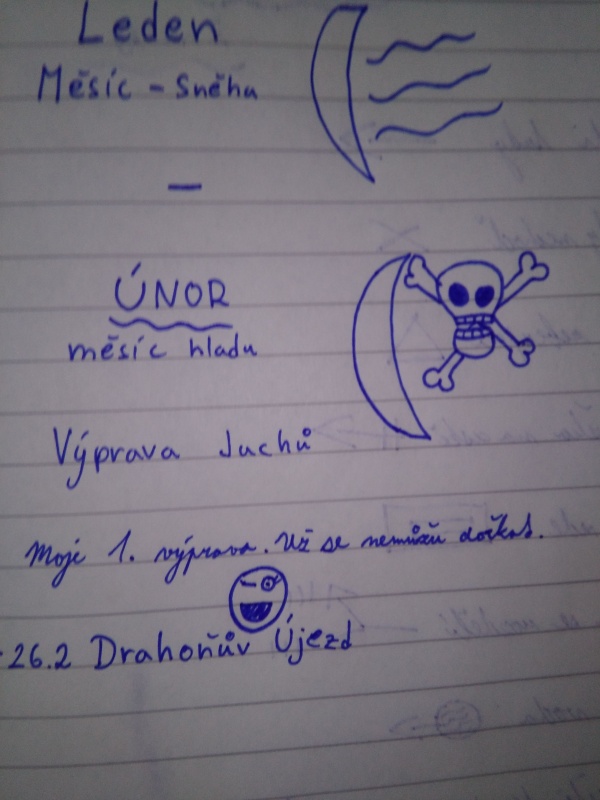 Leden
Měsíc - Sněhu
-
ÚNOR
měsíc hladu
Výprava Juchů
Moje 1. výprava. Už se nemůžu dočkat.
-26.2 Drahoňův Újezd